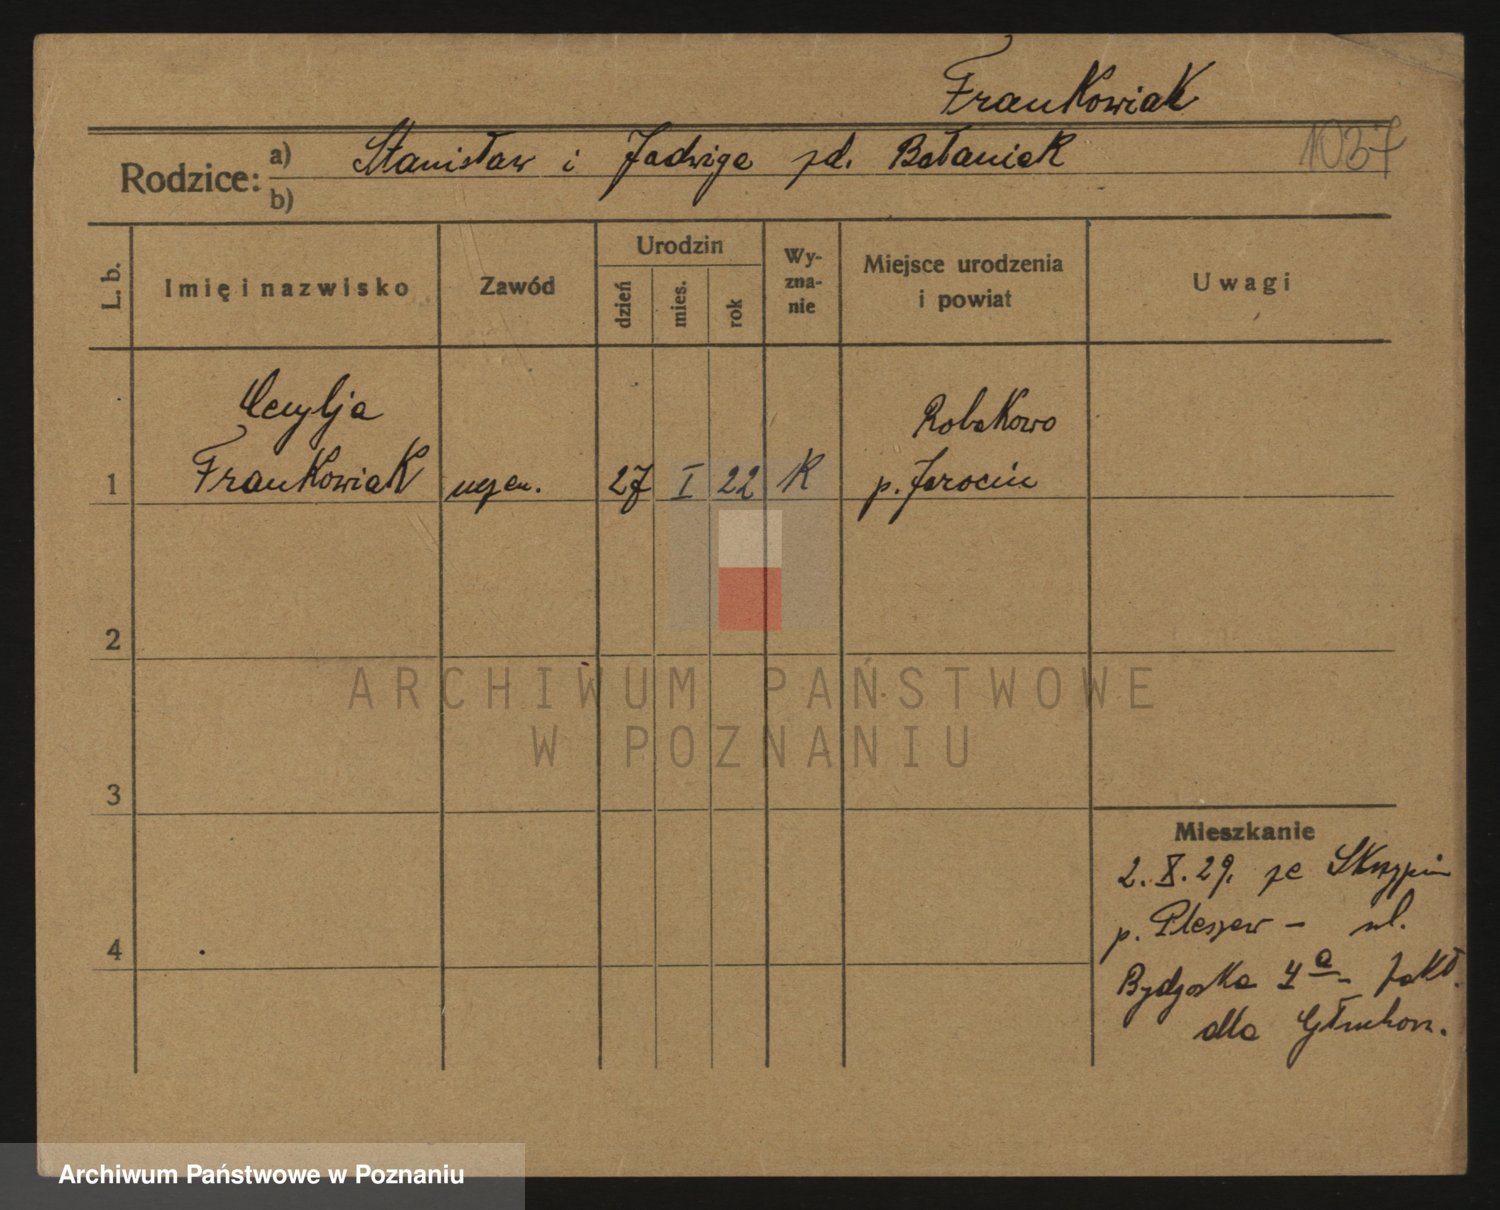 Frankowiak
1037
Rodzice: a) Stanisław i Jadwiga zd. Bałaniak
b)
L. b.
Imię i nazwisko
Zawód
Urodzin
dzień
mies.
rok
Wy-
zna-
nie
Miejsce urodzenia
i powiat
Uwagi
Cecylja
Frankowiak
1
uczen.
27 I 22
K
Robakowo
p. Jarocin
2
ARCHIWUM PAŃSTWOWE
W POZNANIU
3
4
Mieszkanie
2. X. 29. ze
p. Pleszew – ul.
Bydgoska 4a – Zakł.
dla Głuchon.
Archiwum Państwowe w Poznaniu